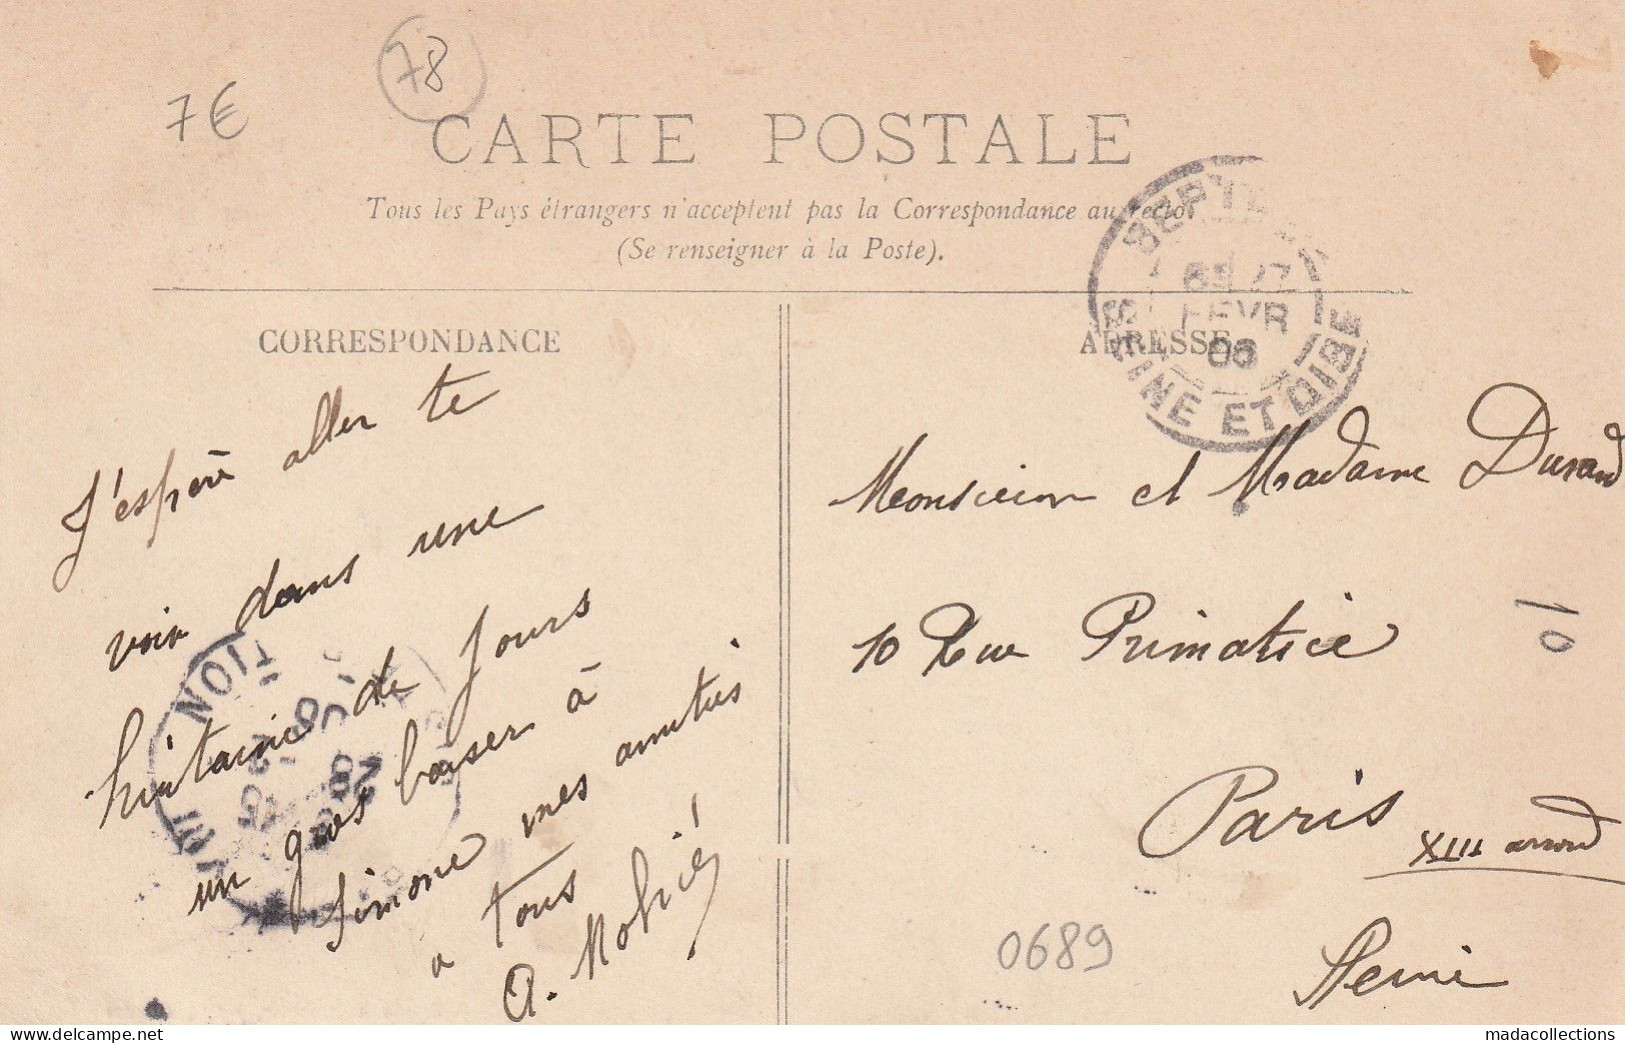 7€
78
CARTE POSTALE
Tous les Pays étrangers n'acceptent pas la Correspondance au recto.
(Se renseigner à la Poste).
CORRESPONDANCE
J'espère aller te
voir dans une
huitaine de jours
un gros baiser à
Simone mes amitiés
a tous
A.
TION
ADRESSE
FEVR
06
SEINE ET OISE
Monsieur et Madame Durand
10 Rue Primatice
Paris
XIII arrond
Seine
10
0689
madacollections